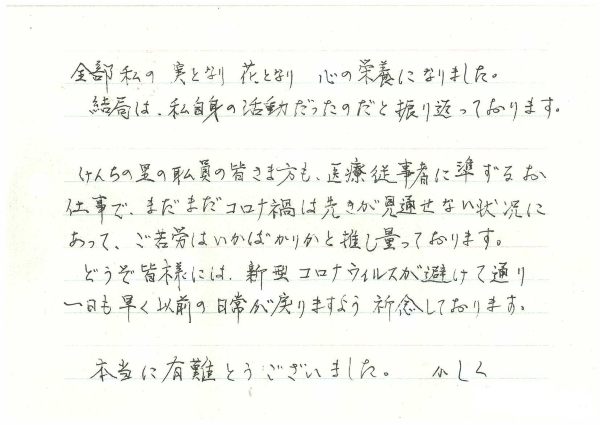 全部私の 実となり 花となり 心の栄養になりました。
結局は、私自身の活動だったのだと振り返っております。
けんちの里の職員の皆さま方も、医療従事者に準ずるお
仕事で、まだまだコロナ禍は先きが見通せない状況に
あって、ご苦労はいかばかりかと推し量っております。
どうぞ皆様には、新型コロナウィルスが避けて通り
一日も早く以前の日常が戻りますよう祈念しております。
本当に有難とうございました。 かしく